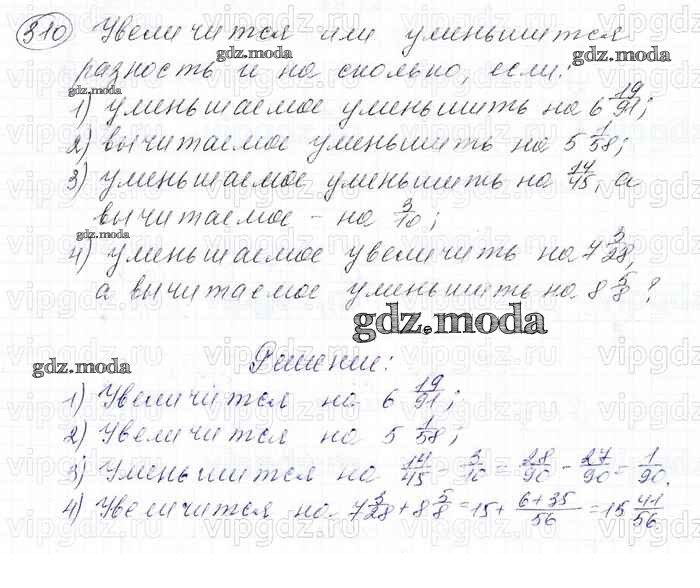 310 Увеличится или уменьшится
разность и на сколько, если:
1) уменьшаемое уменьшить на 6 19/91;
2) вычитаемое уменьшить на 5 1/58;
3) уменьшаемое уменьшить на 14/45, а
вычитаемое – на 3/10;
4) уменьшаемое увеличить на 7 3/28,
а вычитаемое уменьшить на 8 5/8?
gdz.moda
Решение:
1) Увеличится на 6 19/91;
2) Увеличится на 5 1/58;
3) Уменьшится на 14/45 - 3/10 = 28/90 - 27/90 = 1/90.
4) Увеличится на 7 3/28 + 8 5/8 = 15 + (6+35)/56 = 15 41/56.